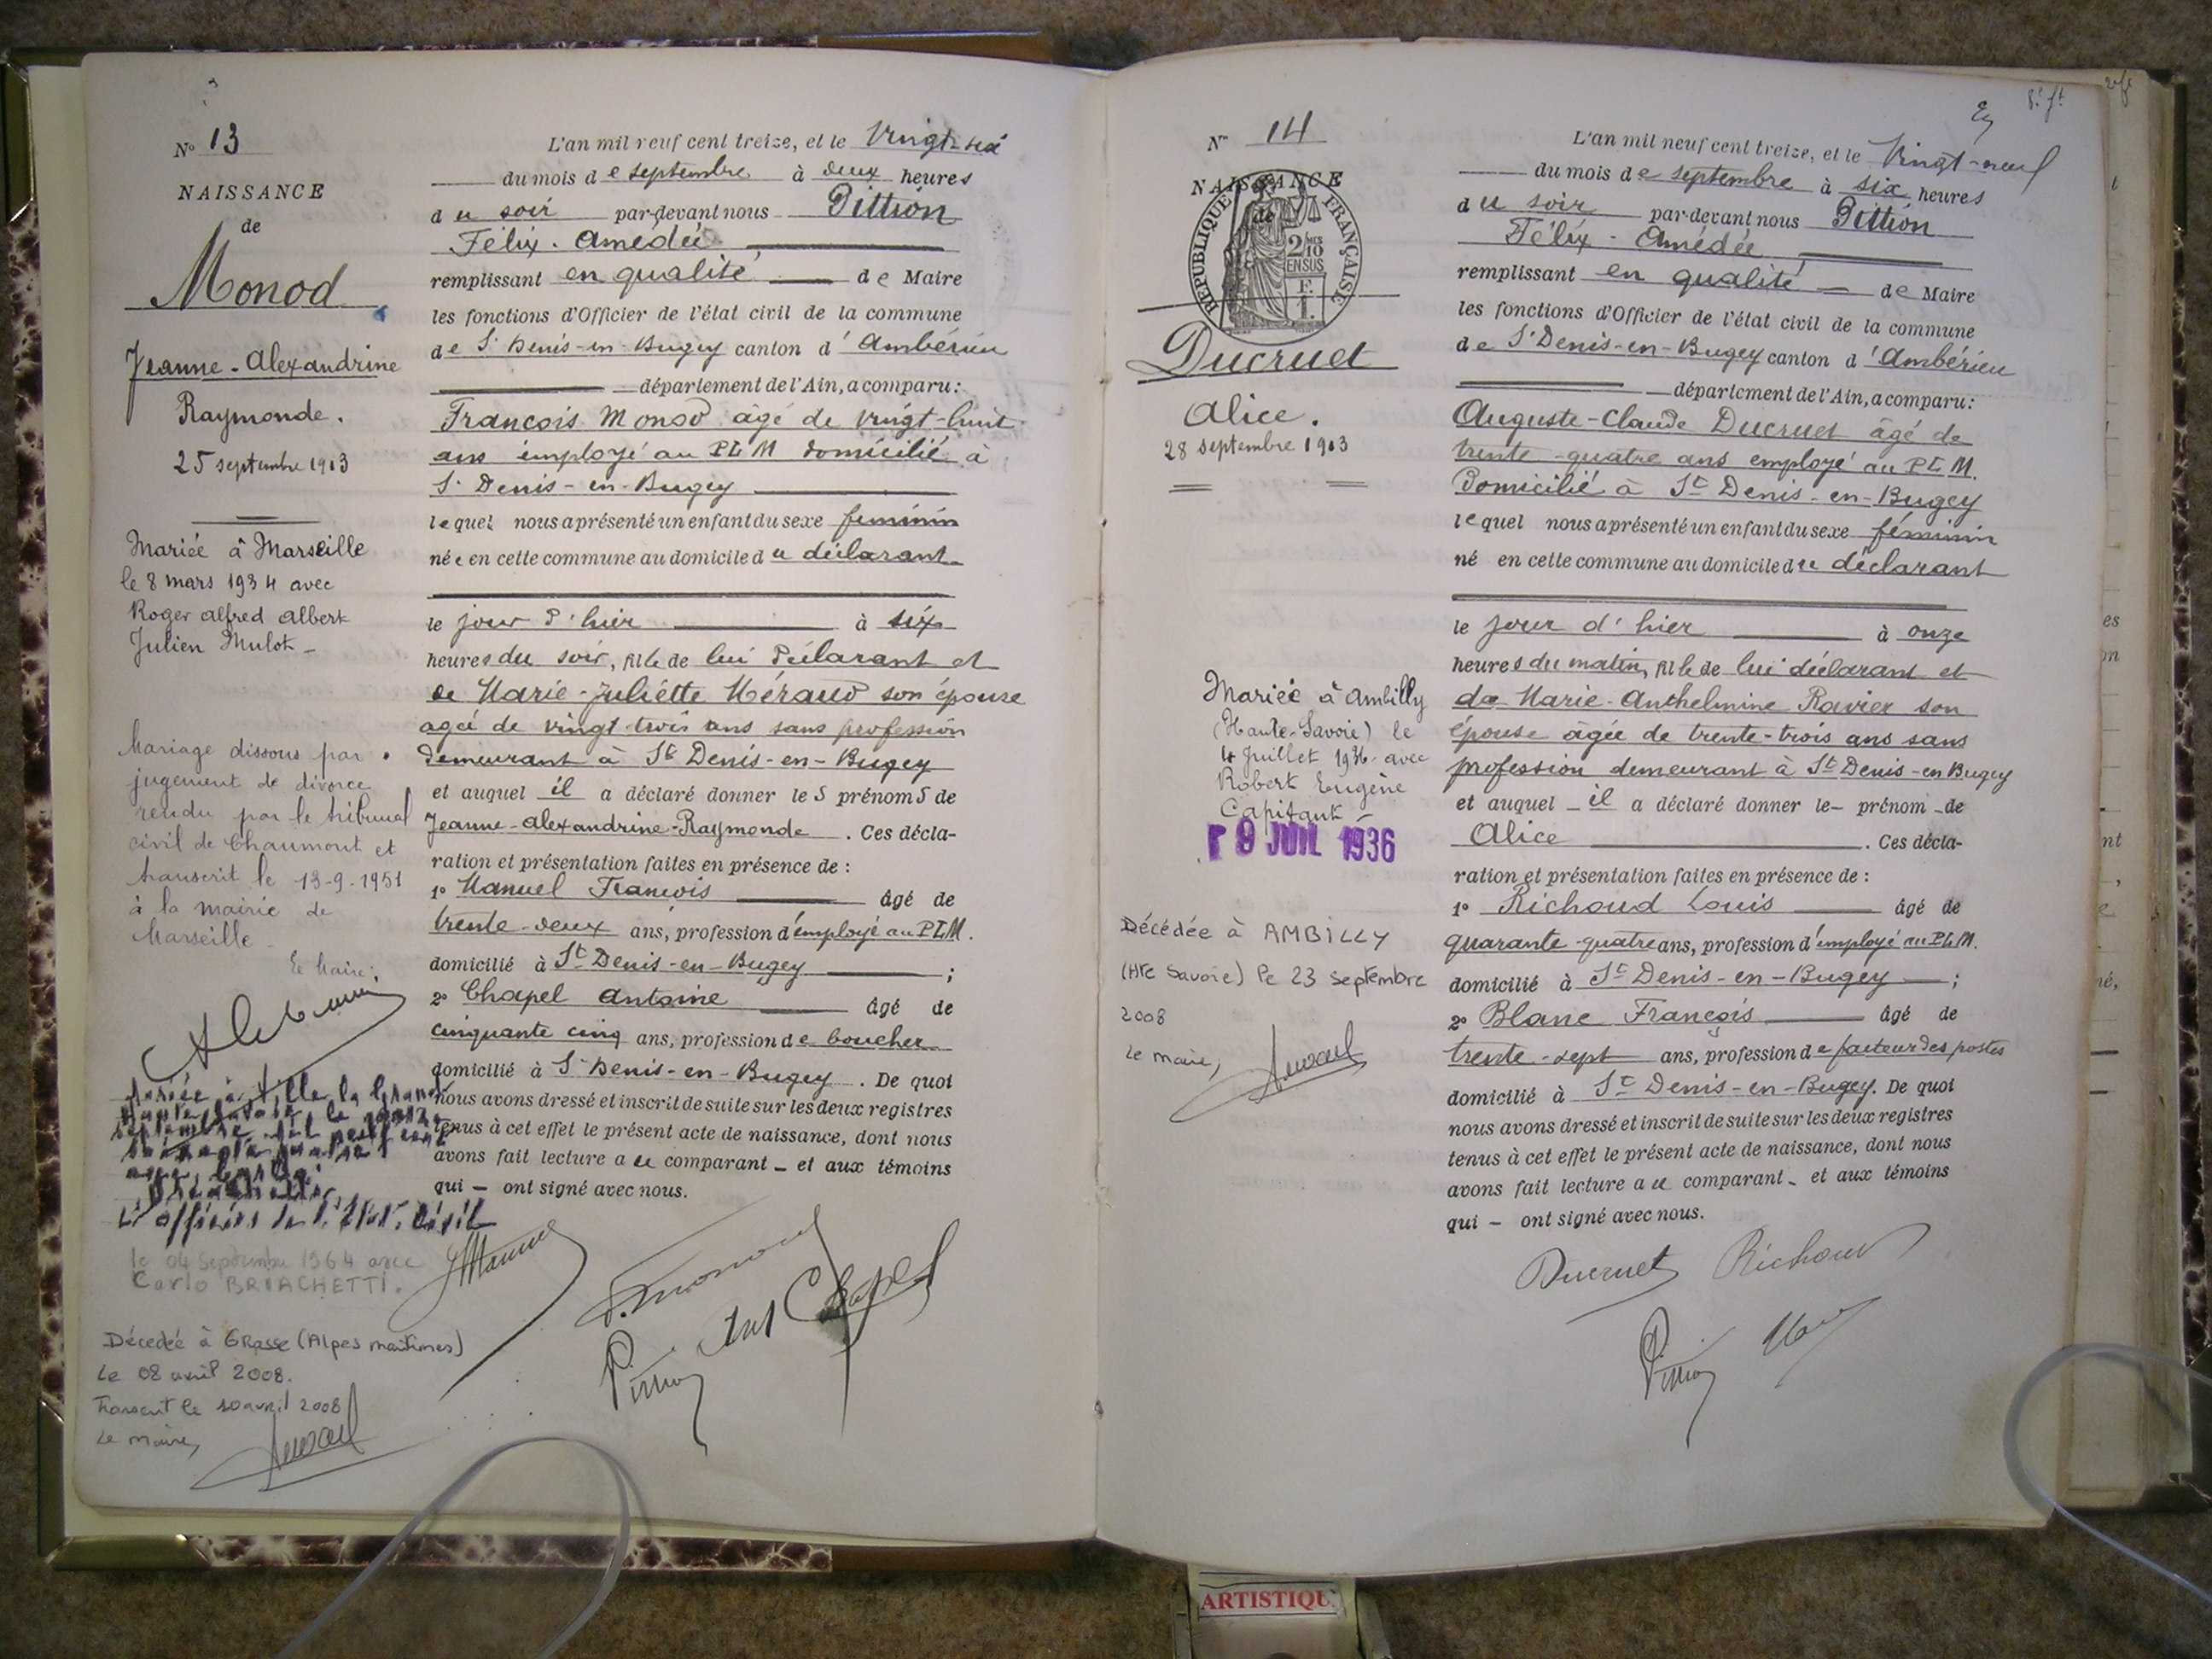 Nº 13
NAISSANCE
de
Monod
Jeanne-Alexandrine
Raymonde.
25 septembre 1913
Mariée à Marseille
le 8 mars 1934 avec
Roger Alfred Albert
Julien Mulot -
Mariage dissous par
jugement de divorce
rendu par le tribunal
civil de Chaumont et
transcrit le 13-9-1951
à la mairie de
Marseille -
Le Maire:
Mariée à Ville la Grand
septembre
L'officier de l'Etat Civil
le 04 septembre 1964 avec
Carlo BRIACHETTI.
Décedée à Grasse (Alpes maritimes)
Le 08 avril 2008.
Transcrit le 10 avril 2008
Le maire,
L'an mil neuf cent treize, et le Vingt-six
du mois de septembre à deux heures
du soir par-devant nous Pittion
Félix-Amédée
remplissant en qualité de Maire
les fonctions d'Officier de l'état civil de la commune
de St Denis-en-Bugey canton d'Ambérieu
département de l'Ain, a comparu:
François Monod âgé de vingt-huit
ans employé au PLM domicilié à
St Denis-en-Bugey
lequel nous a présenté un enfant du sexe féminin
née en cette commune au domicile du déclarant
le jour d'hier à six
heures du soir, fille de lui déclarant et
de Marie-Juliette Méraud son épouse
agée de vingt-trois ans sans profession
demeurant à St Denis-en-Bugey
et auquel il a déclaré donner les prénoms de
Jeanne-Alexandrine-Raymonde. Ces décla-
ration et présentation faites en présence de :
1º Manuel François âgé de
trente-deux ans, profession d'employé au PLM.
domicilié à St Denis-en-Bugey ;
2º Chapel Antoine âgé de
cinquante cinq ans, profession de boucher
domicilié à St Denis-en-Bugey. De quoi
nous avons dressé et inscrit de suite sur les deux registres
tenus à cet effet le présent acte de naissance, dont nous
avons fait lecture au comparant - et aux témoins
qui - ont signé avec nous.
Ant Chapel
Pittion
Nº 14
NAISSANCE
de
RÉPUBLIQUE FRANÇAISE
2/10
EN SUS
F.
1.
Ducruet
Alice.
28 septembre 1913
Mariée à Ambilly
(Haute-Savoie) le
4 Juillet 1936 avec
Robert Eugène
Capitant -
9 JUIL 1936
Décédée à AMBILLY
(Hte Savoie) le 23 septembre
2008
Le maire,
L'an mil neuf cent treize, et le Vingt-neuf
du mois de septembre à six heures
du soir par-devant nous Pittion
Félix-Amédée
remplissant en qualité - de Maire
les fonctions d'Officier de l'état civil de la commune
de St Denis-en-Bugey canton d'Ambérieu
département de l'Ain, a comparu:
Auguste-Claude Ducruet âgé de
trente-quatre ans employé au PLM.
domicilié à St Denis-en-Bugey
lequel nous a présenté un enfant du sexe féminin
né en cette commune au domicile du déclarant
le jour d'hier à onze
heures du matin, fille de lui déclarant et
de Marie-Anthelmine Ravier son
épouse âgée de trente-trois ans sans
profession demeurant à St Denis-en Bugey
et auquel il a déclaré donner le- prénom -de
Alice. Ces décla-
ration et présentation faites en présence de :
1º Richoud Louis âgé de
quarante-quatre ans, profession d'employé au PLM.
domicilié à St Denis-en-Bugey ;
2º Blanc François âgé de
trente-sept ans, profession de facteur des postes
domicilié à St Denis-en-Bugey. De quoi
nous avons dressé et inscrit de suite sur les deux registres
tenus à cet effet le présent acte de naissance, dont nous
avons fait lecture au comparant - et aux témoins
qui - ont signé avec nous.
Ducruet Richoud
Pittion
ARTISTIQU